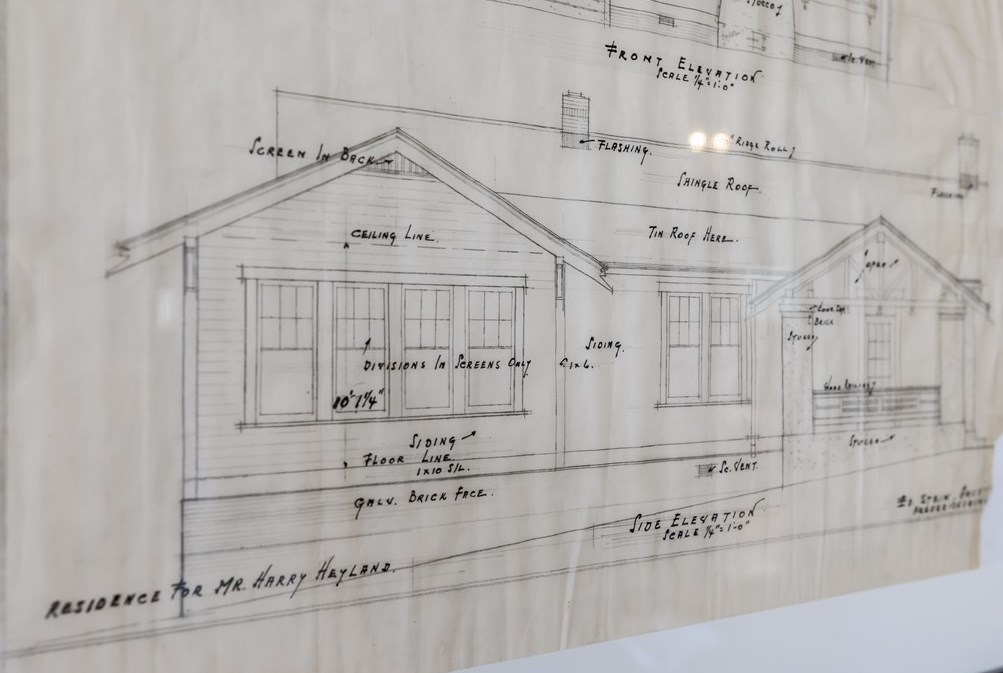 STUCCO
FRONT ELEVATION
SCALE 1/4"=1'-0"
SCREEN IN BACK
FLASHING.
RIDGE ROLL
SHINGLE ROOF.
FLASHING
CEILING LINE.
TIN ROOF HERE.
OPEN
BRICK
STUCCO
SIDING.
DIVISIONS IN SCREENS ONLY
10'-1 1/4"
SIDING
FLOOR LINE.
1X10 S/L.
STUCCO
SC. VENT.
GALV. BRICK FACE.
SIDE ELEVATION
SCALE 1/4"=1'-0"
RESIDENCE FOR MR. HARRY HEYLAND.